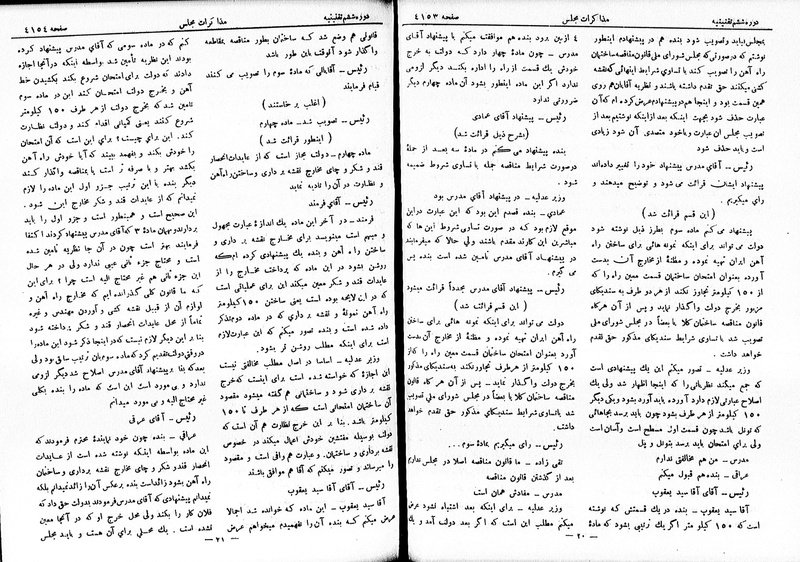 دوره ششم تقنینیه
مذاکرات مجلس
صفحه ٤١٥٣
بمجلس بیاید و تصویب شود بنده هم در پیشنهادم اینطور
نوشتم که در صورتی که مجلس شورای ملی قانون مناقصه ساختمان
راه آهن را تصویب کند با تساوی شرایط اینهائی که نقشه
کشی میکنند حق تقدم داشته باشند و نظریه آقایان هم روی
همین قسمت بود و اینجا هم در پیشنهادم عرض کرده ام که آن
عبارت حذف شود بجهت اینکه بعد از اینکه نوشتیم بعد از
تصویب مجلس آن عبارت و باخود متصدی آن شود زیادی
است و باید حذف شود
رئیس ــ آقای مدرس پیشنهاد خود را تغییر داده اند
پیشنهاد ایشان قرائت می شود و توضیح میدهند و
رأی میگیریم .
( این قسم قرائت شد )
پیشنهاد می کنم ماده سوم بطرز ذیل نوشته شود
دولت می تواند برای اینکه نمونه هائی برای ساختن راه
آهن ایران تهیه نموده و مظنّه از مخارج آن بدست
آورد بعنوان امتحان ساختمان قسمت معین راه را که
از ١٥٠ کیلومتر تجاوز نکند از هر دو طرف به سندیکای
مزبور بخرج دولت واگذار نماید و پس از آن هر گاه
قانون مناقصه ساختمان کلا یا بعضاً در مجلس شورای ملی
تصویب شد با تساوی شرایط سندیکای مذکور حق تقدم
خواهد داشت .
وزیر عدلیه ــ تصور میکنم این یک پیشنهادی است
که جمع میکند نظریاتی را که اینجا اظهار شد ولی یک
اصلاح عبارتی لازم دارد آورده باید آورد بشود و یکی دیگر
١٥٠ کیلومتر از هر طرف بشود چون باید برسد بجاهائی
که تونل باشد چون قسمت اول مسطح است و آسان است
ولی برای امتحان باید برسد بتونل و پل
مدرس ــ من هم مخالفتی ندارم
عراقی ــ بنده هم قبول میکنم
رئیس ــ آقای آقا سید یعقوب
آقا سید یعقوب ــ بنده در یک قسمتش که نوشته
است که ١٥٠ کیلو متر اگر یک ترتیبی بشود که مادهٔ
٤ از بین برود بنده هم موافقت میکنم با پیشنهاد آقای
مدرس ــ چون مادهٔ چهار دارد که دولت به خرج
خودش یک قسمت از راه را اداره بکند دیگر لزومی
ندارد اگر این ماده اینطور بشود آن ماده چهارم دیگر
ضرورتی ندارد
رئیس ــ پیشنهاد آقای عمادی
( بشرح ذیل قرائت شد )
بنده پیشنهاد می کنم در مادهٔ سه بعد از جملهٔ
در صورت شرایط مناقصه جمله با تساوی شروط ضمیمه
شود .
وزیر عدلیه ــ در پیشنهاد آقای مدرس بود
عمادی ــ بنده قصدم این بود که این عبارت در این
موقع لازم بود که در صورت تساوی شروط این ها که
مباشرین این کارند مقدم باشند ولی حالا که میفرمایند
در پیشنهاد آقای مدرس تأمین شده است بنده پس
می گیرم .
رئیس ــ پیشنهاد آقای مدرس مجدداً قرائت میشود
( این قسم قرائت شد )
دولت می تواند برای اینکه نمونه هائی برای ساختن
راه آهن ایران تهیه نموده و مظنّه از مخارج آن بدست
آورد بعنوان امتحان ساختمان قسمت معین راه را که از
١٥٠ کیلومتر از هر طرف تجاوز نکند به سندیکای مذکور
بخرج دولت واگذار نماید ــ پس از آن هر گاه قانون
مناقصه ساختمان کلا یا بعضاً در مجلس شورای ملی تصویب
شد با تساوی شرایط سندیکای مذکور حق تقدم خواهد
داشت .
رئیس ــ رأی میگیریم بمادهٔ سوم ...
تقی زاده ــ ما قانون مناقصه اصلا در مجلس نداریم
بعد از گذشتن قانون مناقصه
مدرس ــ مفادش همان است
وزیر عدلیه ــ برای اینکه بعد اشتباه نشود عرض
میکنم مطلب این است که اگر بعد دولت آمد و یک
ــ ٢٠ ــ
دوره ششم تقنینیه
مذاکرات مجلس
صفحه ٤١٥٤
قانونی هم وضع شد که ساختمان بطور مناقصه بمقاطعه
واگذار شود آنوقت باین طور باشد
رئیس ــ آقایانی که مادهٔ سوم را تصویب می کنند
قیام فرمایند
( اغلب بر خاستند )
رئیس ــ تصویب شد ــ ماده چهارم
( اینطور قرائت شد )
ماده چهارم ــ دولت مجاز است که از عایدات انحصار
قند و شکر و چای مخارج نقشه برداری و ساختن راه آهن
و نظارت در آن را تادیه نماید
رئیس ــ آقای فرمند
فرمند ــ در آخر این ماده یک اندازهٔ عبارت مجهول
و مبهم است مینویسد برای مخارج نقشه برداری و
ساختن راه آهن و بنده یک پیشنهادی کرده ام که
روشن بشود در این ماده که پرداخت مخارج را از
عایدات قند و شکر معین میکند این برای عملیاتی است
که در این لایحه بوده است یعنی ساختن ١٥٠ کیلومتر
راه آهن نمونهٔ و نقشه برداری و که در ماده دوم متذکر
داده شده است و بنده تصور میکنم که این عبارت لازم
است برای اینکه مطلب روشن تر بشود .
وزیر عدلیه ــ اساسا در اصل مطلب مخالفتی نیست
این اجازهٔ که خواسته شده است برای اینست که خرج
نقشه برداری شود و ساختمانی هم گفته میشود مقصود
آن ساختمان امتحانی است که از هر طرف تا ١٥٠
کیلومتر باشد . بنا بر این خرج نظارت هم آن است که
دولت بوسیله مفتشین خودش اعمال میکند در خصوص
نقشه برداری و ساختمان . و عبارت هم وافی است و مقصود
را میرساند و تصور میکنم که آقا هم موافق باشند
رئیس ــ آقای آقا سید یعقوب
آقا سید یعقوب ــ این ماده که خوانده شد اجمالا
عرض میکنم که بنده آن را نفهمیدم میخواهم عرض
کنم که در ماده سومی که آقای مدرس پیشنهاد کرده
بودند این نظریه تأمین شد بواسطه اینکه در آنجا اجازه
دادند که دولت برای امتحان شروع بکند بکشیدن خط
آهن و بخرج دولت امتحان کند این در ماده سوم
تامین شد که بخرج دولت از هر طرف ١٥٠ کیلومتر
شروع کنند یعنی کمپانی اقدام کند و دولت نظارت
کند . این برای چیست ؟ برای این است که آن امتحان
را خودش بکند و بفهمد ببیند که آیا خودش راه آهن
بکشد بهتر و با صرفه تر است یا مناقصه واگذار کند
دیگر بنده با این ترتیب جزو اول این ماده را لازم
نمیدانم که از عایدات قند و شکر مخارج این شود .
این صحیح است و همینطور است و جزو اول را باید
بردارند و بهمان مادهٔ ٣ که آقای مدرس پیشنهاد کردند اکتفا
فرمایند بهتر است چون در آن جا نظریه تأمین شده
است و محتاج جزء ثانی عیبی ندارد ولی در هر حال
این جزء ثانی هم غیر محتاج الیه است چرا ؟ برای این
که ما قانون کلی گذرانده ایم که مخارج راه آهن و
لوازم آن از قبیل نقشه کشی و آوردن مهندس و غیره
تماماً از محل عایدات انحصار قند و شکر پرداخته شود
بنا بر این دیگر لازم نیست که در اینجا ذکر شود این ماده را
در وقتی دولت تقدیم کرد که ماده سومتان ترتیب سابق بود ولی
بعد که بنا بر پیشنهاد آقای مدرس اصلاح شد دیگر لزومی
ندارد و بی مورد است این است که ماده را بنده بکلی
غیر محتاج الیه و بی مورد میدانم
رئیس ــ آقای عراقی
عراقی ــ بنده چون خود نمایندهٔ محترم فرمودند که
این ماده بواسطه اینکه نوشته شده است از عایدات
انحصار قند و شکر و چای مخارج نقشه برداری و ساختمان
راه آهن بشود زائد است بنده بر عکس آن را زائد نمیدانم بلکه
نمیدانم پیشنهادی که آقای مدرس فرمودند بدولت حق داد که
فلان کار را بکند ولی محل خرج او که در آنجا معین
نشده است . یک محلی برای آن هست و باید مجلس
ــ ٢١ ــ